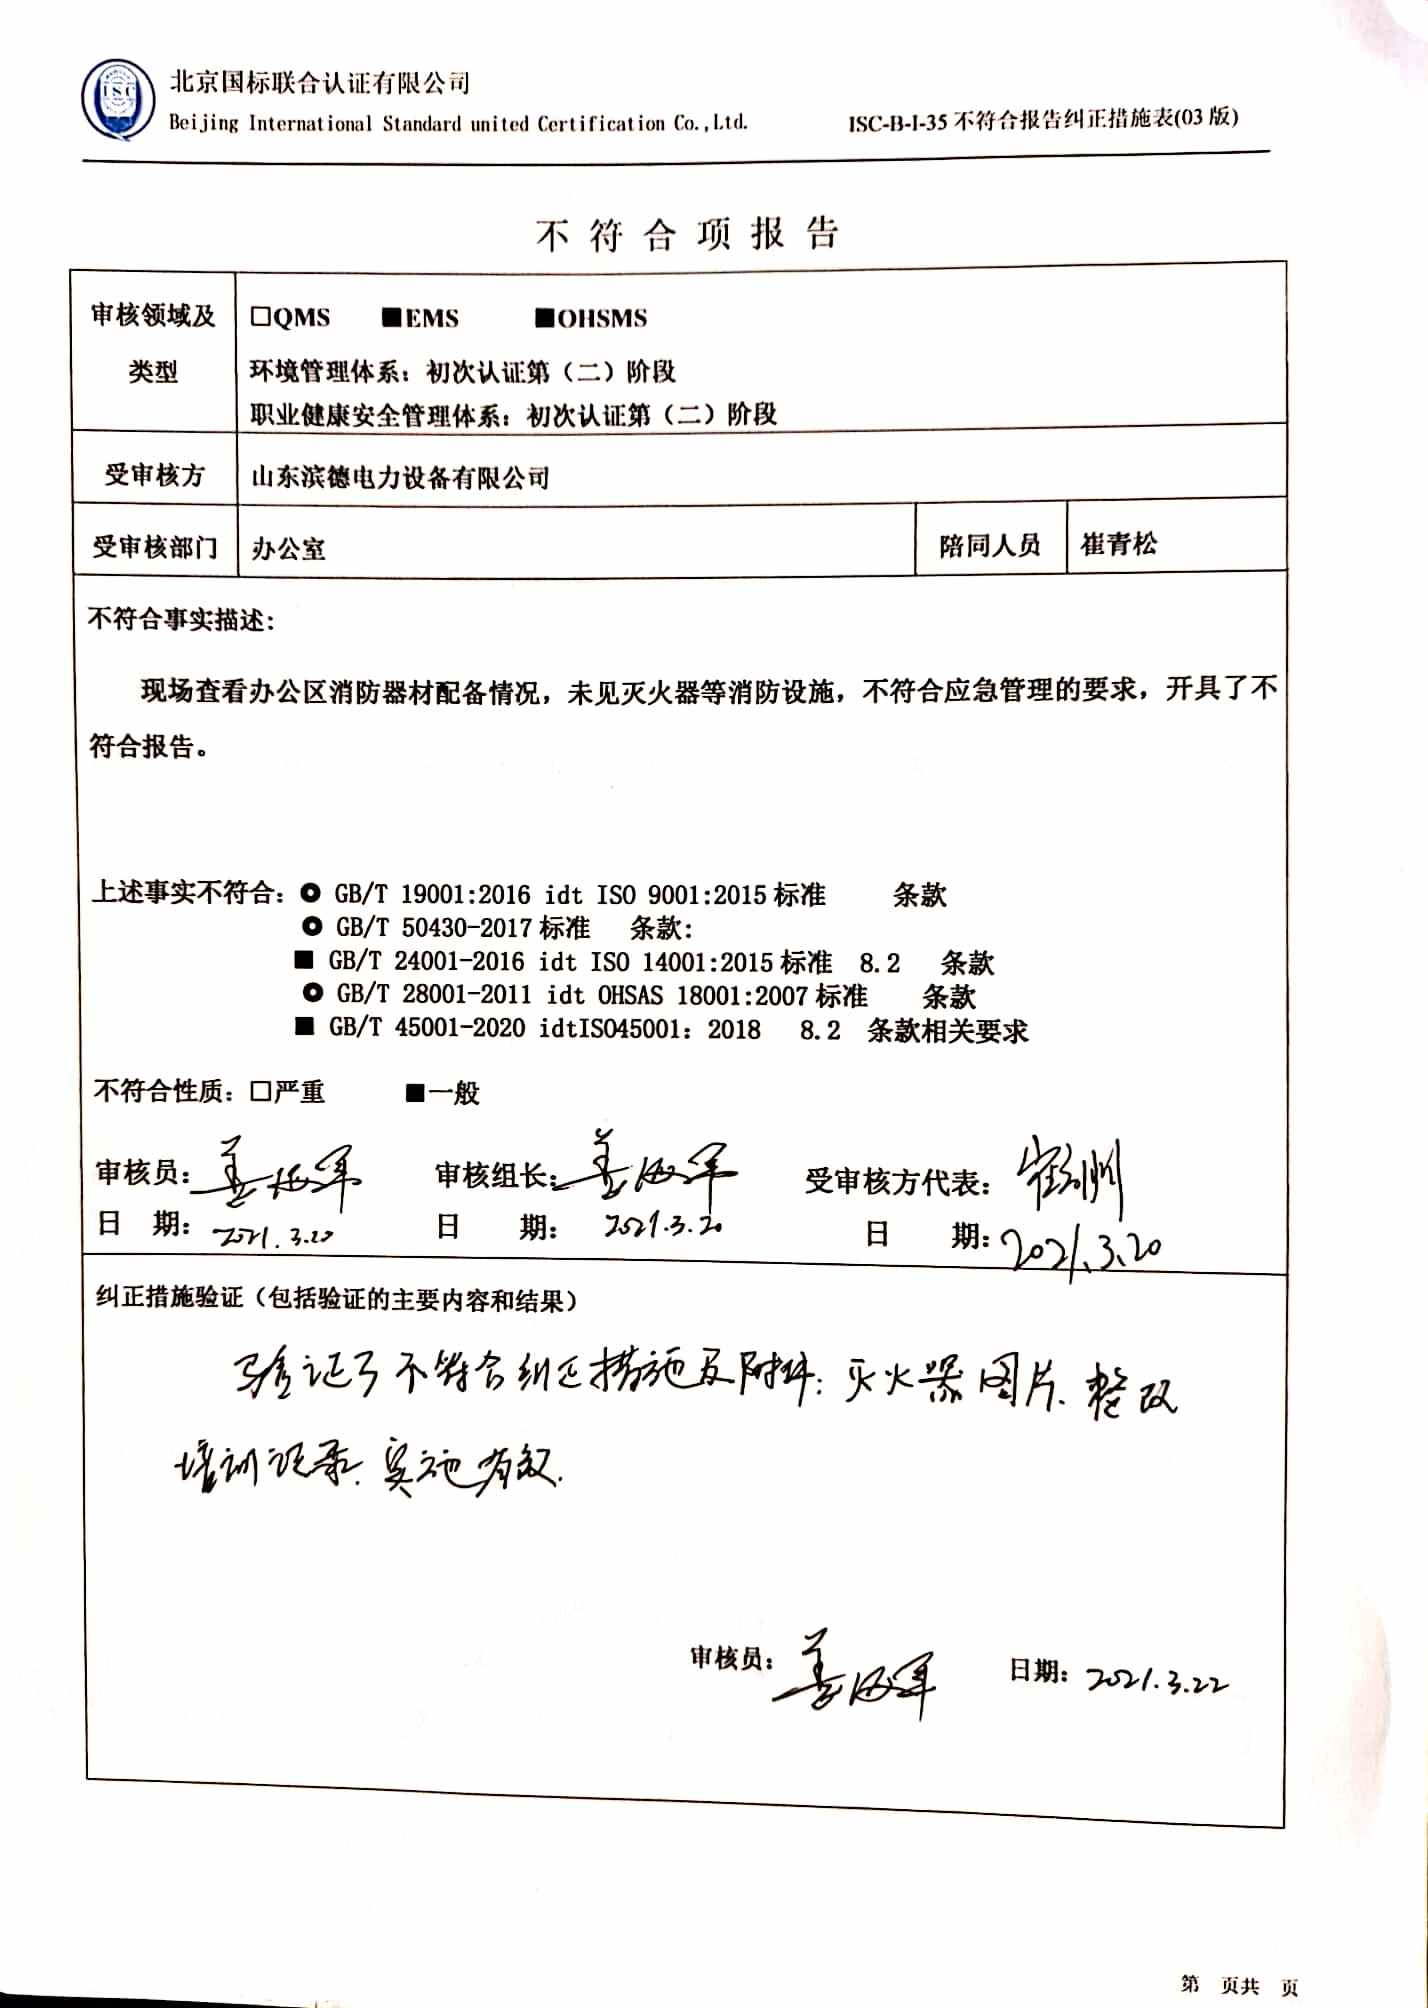 ISC
北京国标联合认证有限公司
Beijing International Standard united Certification Co.,Ltd.
ISC-B-I-35 不符合报告纠正措施表(03 版)
不符合项报告
审核领域及类型
□QMS ■EMS ■OHSMS
环境管理体系：初次认证第（二）阶段
职业健康安全管理体系：初次认证第（二）阶段
受审核方 山东滨德电力设备有限公司
受审核部门 办公室 陪同人员 崔青松
不符合事实描述:
现场查看办公区消防器材配备情况，未见灭火器等消防设施，不符合应急管理的要求，开具了不
符合报告。
上述事实不符合：○ GB/T 19001:2016 idt ISO 9001:2015 标准 条款
○ GB/T 50430-2017 标准 条款：
■ GB/T 24001-2016 idt ISO 14001:2015 标准 8.2 条款
○ GB/T 28001-2011 idt OHSAS 18001:2007 标准 条款
■ GB/T 45001-2020 idtISO45001：2018 8.2 条款相关要求
不符合性质：□严重 ■一般
审核员： 审核组长： 受审核方代表：
日 期： 2021.3.20 日 期： 2021.3.20 日 期：2021.3.20
纠正措施验证（包括验证的主要内容和结果）
验证了不符合纠正措施及附件：灭火器图片、整改
培训记录、实施有效.
审核员： 日期：2021.3.22
第 页共 页